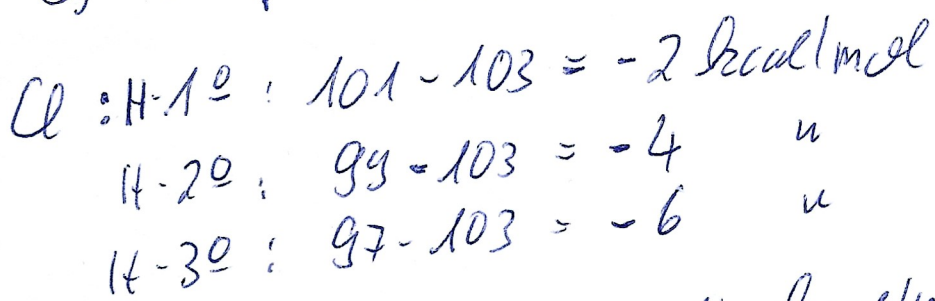 Cl : H-1º : 101 - 103 = -2 kcal/mol
H-2º : 99 - 103 = -4 "
H-3º : 97 - 103 = -6 "